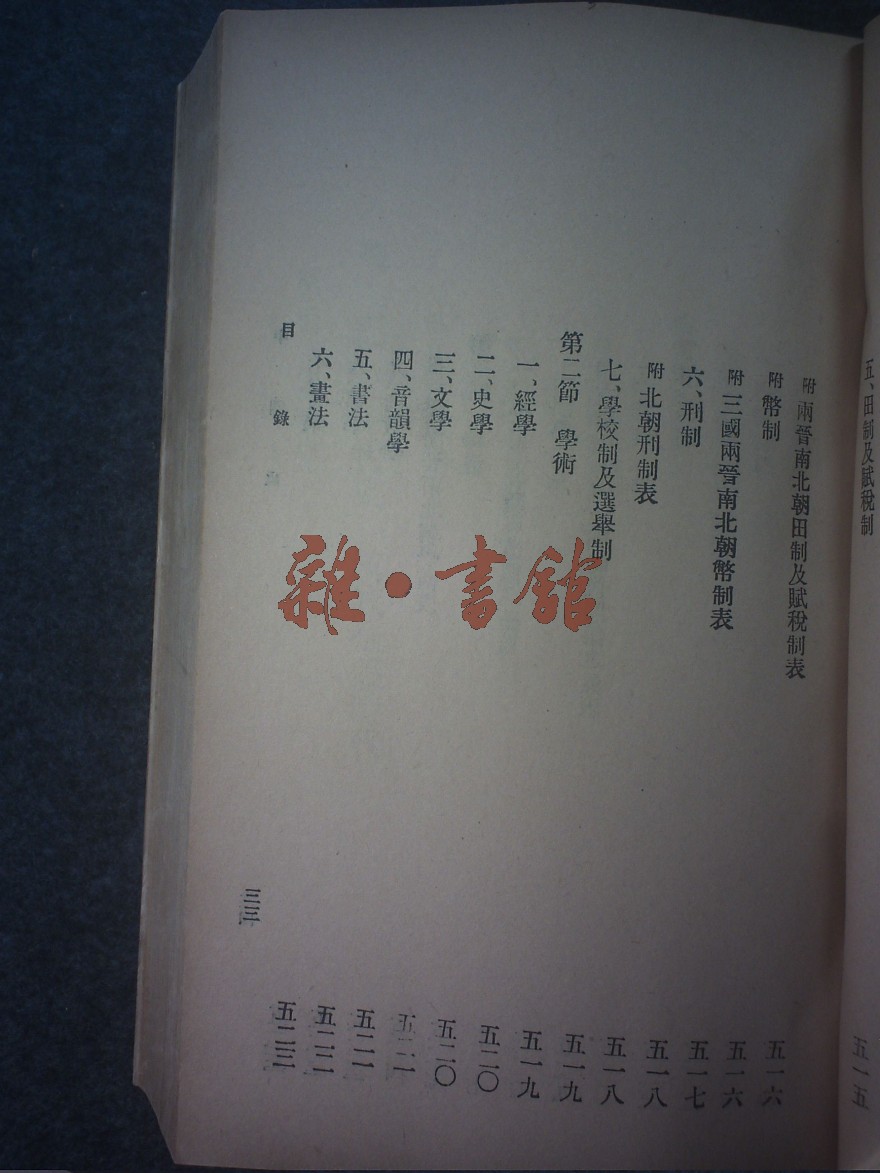 五、田制及賦稅制 五一五
附 兩晉南北朝田制及賦稅制表 五一六
附 幣制 五一六
附 三國兩晉南北朝幣制表 五一七
六、刑制 五一八
附 北朝刑制表 五一八
七、學校制及選舉制 五一九
第二節 學術 五一九
一、經學 五二〇
二、史學 五二〇
三、文學 五二一
四、音韻學 五二一
五、書法 五二二
六、畫法 五二三
目錄
三三
雜·書館